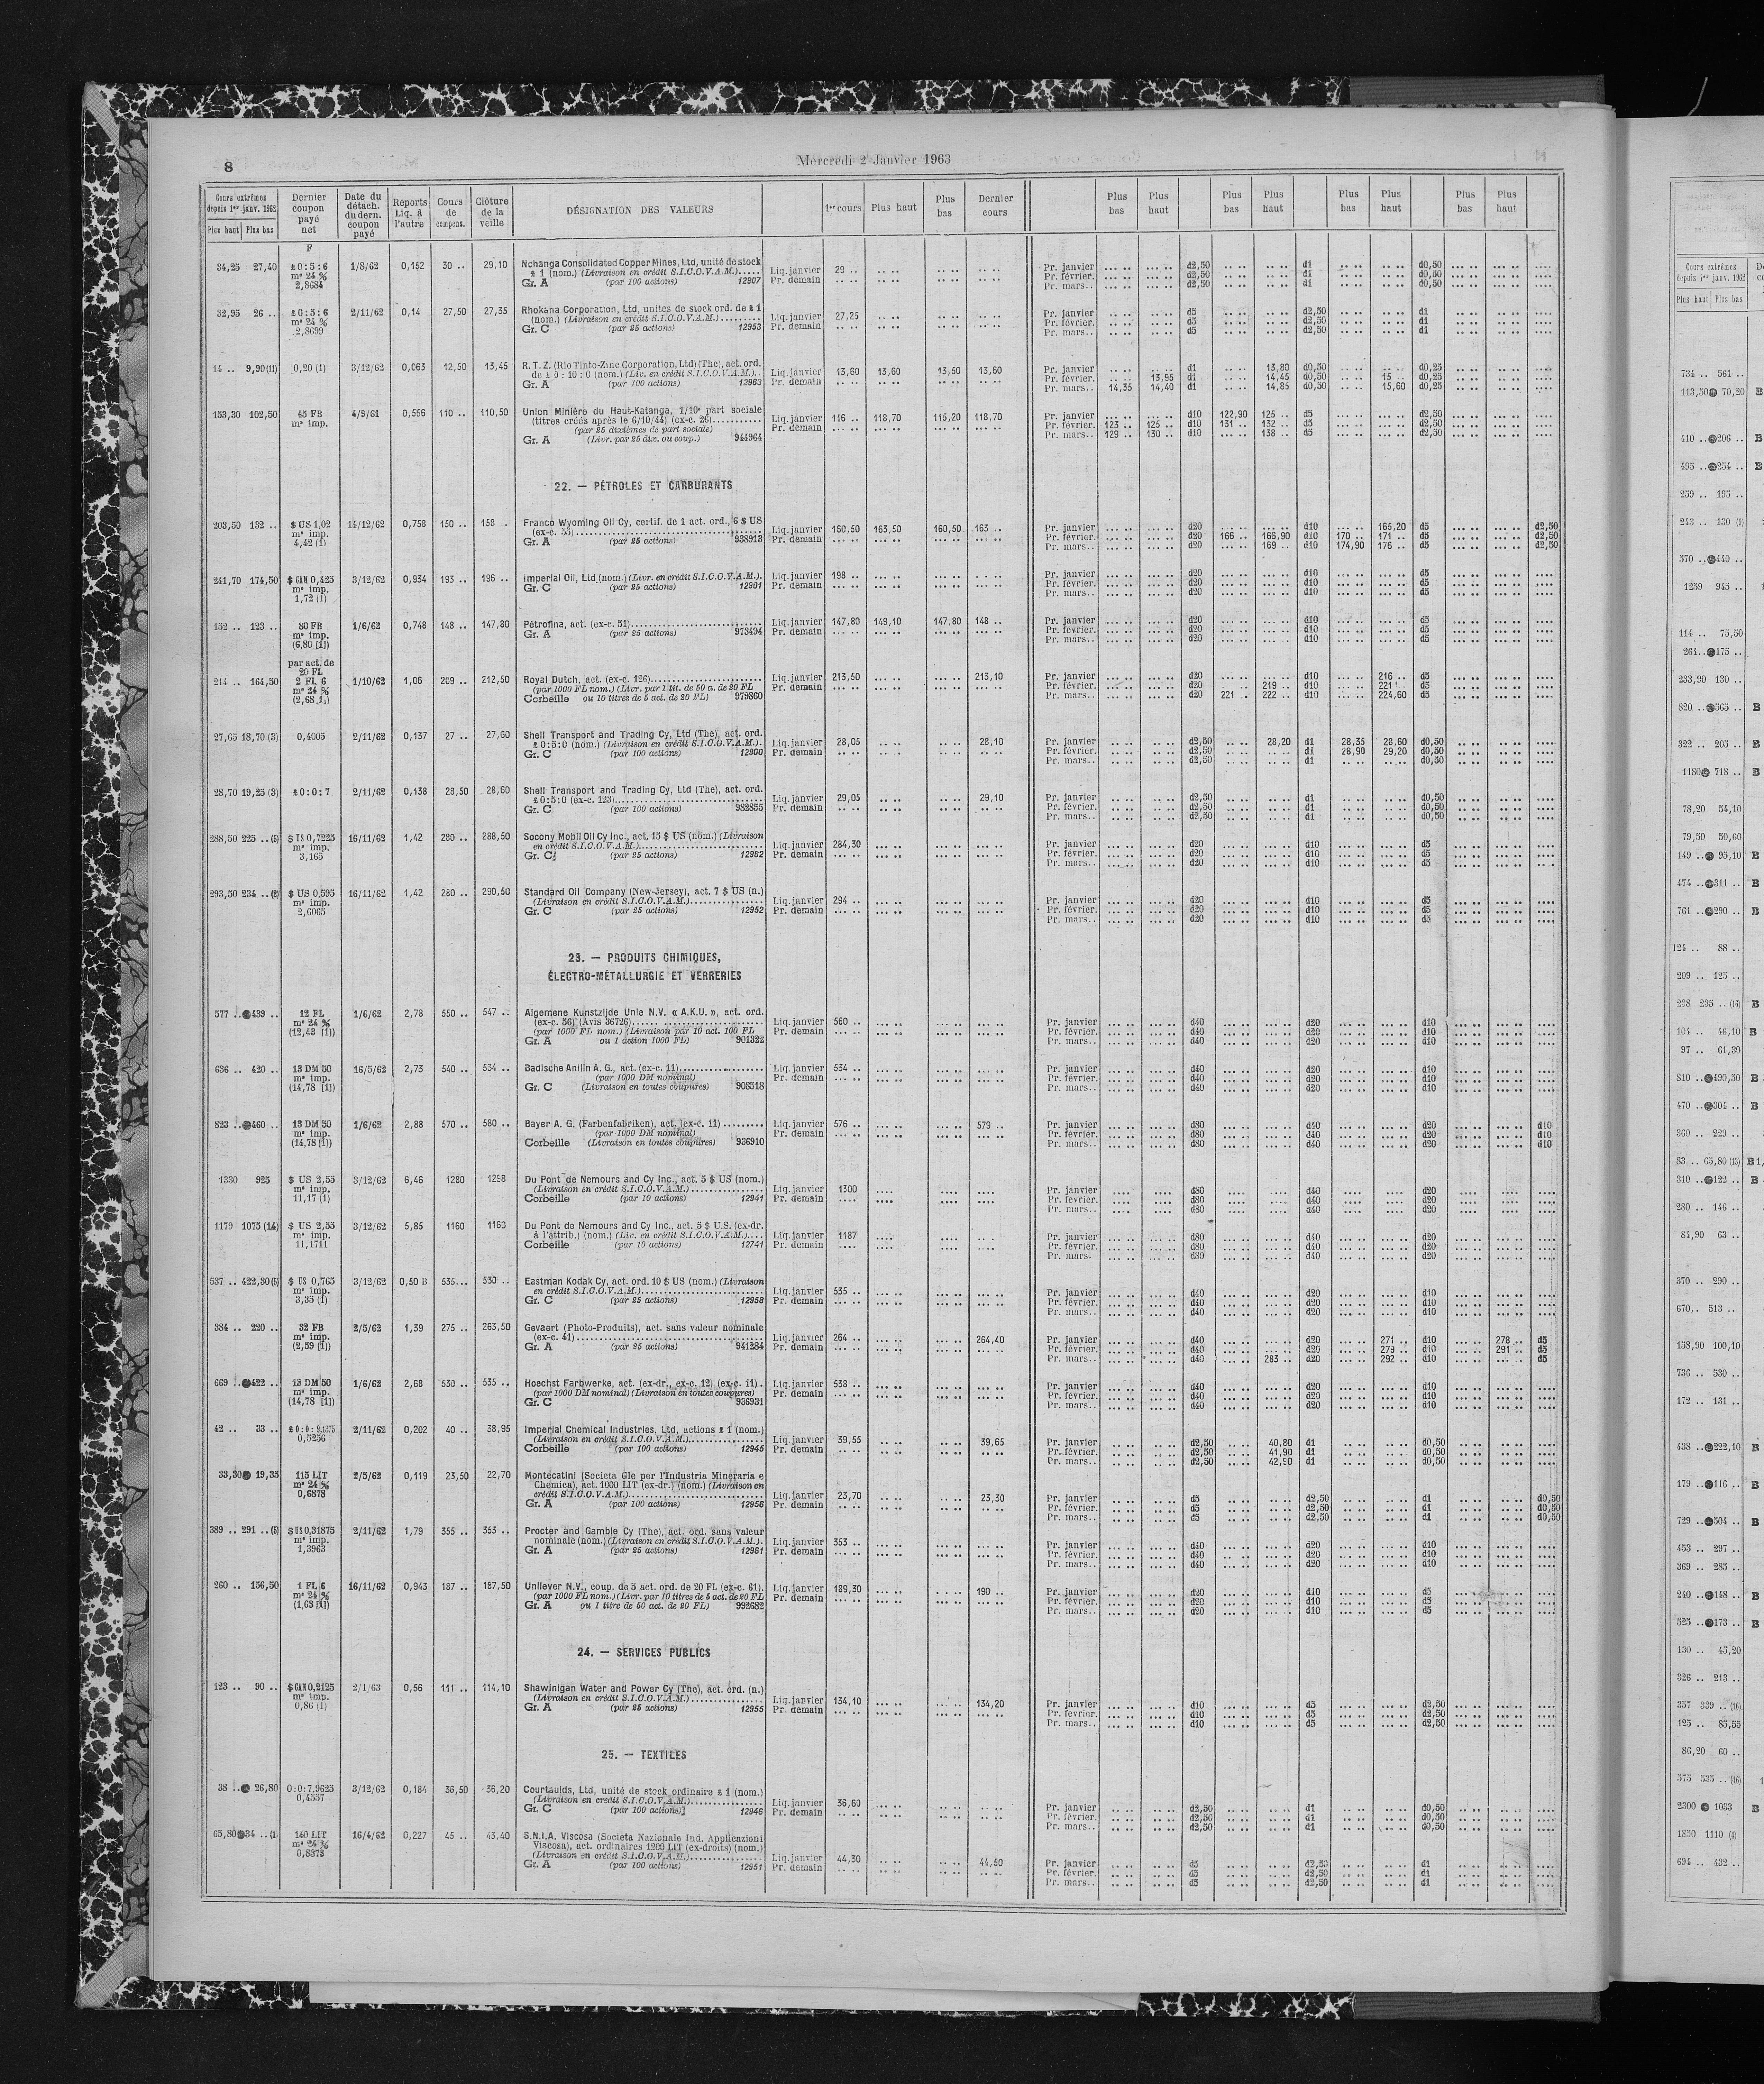 8
Mercredi 2 Janvier 1963
Cours extrêmes depuis 1er janv. 1962 Plus haut Plus bas | Dernier coupon payé net | Date du détach. du dern. coupon payé | Reports Liq. à l'autre | Cours de compens. | Clôture de la veille | DÉSIGNATION DES VALEURS | 1er cours | Plus haut | Plus bas | Dernier cours | Plus bas | Plus haut | Plus bas | Plus haut | Plus bas | Plus haut | Plus bas | Plus haut
F
34,25 27,40 £ 0:5:6 1/8/62 0,152 30 .. 29,10 Nchanga Consolidated Copper Mines, Ltd, unité de stock
m° 24 % £ 1 (nom.) (Livraison en crédit S.I.C.O.V.A.M.)..... Liq. janvier 29 .. Pr. janvier d2,50 d1 d0,50
2,8684 Gr. A (par 100 actions) 12907 Pr. demain Pr. février. d2,50 d1 d0,50
Pr. mars.. d2,50 d1 d0,50
32,95 26 .. £ 0:5:6 2/11/62 0,14 27,50 27,35 Rhokana Corporation, Ltd, unités de stock ord. de £ 1
m° 24 % (nom.) (Livraison en crédit S.I.C.O.V.A.M.) Liq. janvier 27,25 Pr. janvier d5 d2,50 d1
2,8699 Gr. C (par 25 actions) 12953 Pr. demain Pr. février. d5 d2,50 d1
Pr. mars.. d5 d2,50 d1
14 .. 9,90 (11) 0,20 (1) 3/12/62 0,063 12,50 13,45 R.T.Z. (Rio Tinto-Zinc Corporation, Ltd) (The), act. ord.
de £ 0:10:0 (nom.) (Liv. en crédit S.I.C.O.V.A.M.).. Liq. janvier 13,60 13,60 13,50 13,60 Pr. janvier d1 13,80 d0,50 d0,25
Gr. A (par 100 actions) 12963 Pr. demain Pr. février. 13,95 d1 14,45 d0,50 15 .. d0,25
Pr. mars.. 14,35 14,40 d1 14,85 d0,50 15,60 d0,25
153,30 102,50 45 FB 4/9/61 0,556 110 .. 110,50 Union Minière du Haut-Katanga, 1/10e part sociale
m° imp. (titres créés après le 6/10/44) (ex-c. 26) Liq. janvier 116 .. 118,70 115,20 118,70 Pr. janvier d10 122,90 125 .. d5 d2,50
(par 25 dixièmes de part sociale) Pr. demain Pr. février. 123 .. 125 .. d10 131 .. 132 .. d5 d2,50
Gr. A (Livr. par 25 dix. ou coup.) 944964 Pr. mars.. 129 .. 130 .. d10 138 .. d5 d2,50
22. — PÉTROLES ET CARBURANTS
203,50 132 .. $ US 1,02 14/12/62 0,758 150 .. 158 .. Franco Wyoming Oil Cy, certif. de 1 act. ord., 6 $ US
m° imp. (ex-c. 55) Liq. janvier 160,50 163,50 160,50 163 .. Pr. janvier d20 d10 165,20 d5 d2,50
4,42 (1) Gr. A (par 25 actions) 938913 Pr. demain Pr. février. d20 166 .. 166,90 d10 170 .. 171 .. d5 d2,50
Pr. mars.. d20 169 .. d10 174,90 176 .. d5 d2,50
241,70 174,50 $ CAN 0,425 3/12/62 0,934 193 .. 196 .. Imperial Oil, Ltd (nom.) (Livr. en crédit S.I.C.O.V.A.M.). Liq. janvier 198 .. Pr. janvier d20 d10 d5
m° imp. Gr. C (par 25 actions) 12901 Pr. demain Pr. février. d20 d10 d5
1,72 (1) Pr. mars.. d20 d10 d5
152 .. 123 .. 80 FB 1/6/62 0,748 148 .. 147,80 Pétrofina, act. (ex-c. 51) Liq. janvier 147,80 149,10 147,80 148 .. Pr. janvier d20 d10 d5
m° imp. Gr. A (par 25 actions) 973494 Pr. demain Pr. février. d20 d10 d5
(6,80 [1]) Pr. mars.. d20 d10 d5
par act. de
20 FL
214 .. 164,50 2 FL 6 1/10/62 1,06 209 .. 212,50 Royal Dutch, act. (ex-c. 126) Liq. janvier 213,50 213,10 Pr. janvier d20 d10 216 .. d5
m° 24 % (par 1000 FL nom.) (Livr. par 1 tit. de 50 a. de 20 FL Pr. demain Pr. février. d20 219 .. d10 221 .. d5
(2,68 [1]) Corbeille ou 10 titres de 5 act. de 20 FL) 979860 Pr. mars.. d20 221 .. 222 .. d10 224,60 d5
27,65 18,70 (3) 0,4005 2/11/62 0,137 27 .. 27,60 Shell Transport and Trading Cy, Ltd (The), act. ord.
£ 0:5:0 (nom.) (Livraison en crédit S.I.C.O.V.A.M.). Liq. janvier 28,05 28,10 Pr. janvier d2,50 28,20 d1 28,35 28,60 d0,50
Gr. C (par 100 actions) 12900 Pr. demain Pr. février. d2,50 d1 28,90 29,20 d0,50
Pr. mars.. d2,50 d1 d0,50
28,70 19,25 (3) £ 0:0:7 2/11/62 0,138 28,50 28,60 Shell Transport and Trading Cy, Ltd (The), act. ord.
£ 0:5:0 (ex-c. 123) Liq. janvier 29,05 29,10 Pr. janvier d2,50 d1 d0,50
Gr. C (par 100 actions) 982855 Pr. demain Pr. février. d2,50 d1 d0,50
Pr. mars.. d2,50 d1 d0,50
288,50 225 .. (5) $ US 0,7225 16/11/62 1,42 280 .. 288,50 Socony Mobil Oil Cy Inc., act. 15 $ US (nom.) (Livraison
m° imp. en crédit S.I.C.O.V.A.M.) Liq. janvier 284,30 Pr. janvier d20 d10 d5
3,165 Gr. C (par 25 actions) 12962 Pr. demain Pr. février. d20 d10 d5
Pr. mars.. d20 d10 d5
293,50 234 .. (2) $ US 0,595 16/11/62 1,42 280 .. 290,50 Standard Oil Company (New-Jersey), act. 7 $ US (n.)
m° imp. (Livraison en crédit S.I.C.O.V.A.M.) Liq. janvier 294 .. Pr. janvier d20 d10 d5
2,6065 Gr. C (par 25 actions) 12952 Pr. demain Pr. février. d20 d10 d5
Pr. mars.. d20 d10 d5
23. — PRODUITS CHIMIQUES,
ÉLECTRO-MÉTALLURGIE ET VERRERIES
577 .. 439 .. 12 FL 1/6/62 2,78 550 .. 547 .. Algemene Kunstzijde Unie N.V. « A.K.U. », act. ord.
m° 24 % (ex-c. 56) (Avis 36726) Liq. janvier 560 .. Pr. janvier d40 d20 d10
(12,43 [1]) (par 1000 FL nom.) (Livraison par 10 act. 100 FL Pr. demain Pr. février. d40 d20 d10
Gr. A ou 1 action 1000 FL) 901322 Pr. mars.. d40 d20 d10
636 .. 420 .. 13 DM 50 16/5/62 2,73 540 .. 534 .. Badische Anilin A. G., act. (ex-c. 11) Liq. janvier 534 .. Pr. janvier d40 d20 d10
m° imp. (par 1000 DM nominal) Pr. demain Pr. février. d40 d20 d10
(14,78 [1]) Gr. C (Livraison en toutes coupures) 908518 Pr. mars.. d40 d20 d10
823 .. 460 .. 13 DM 50 1/6/62 2,88 570 .. 580 .. Bayer A. G. (Farbenfabriken), act. (ex-c. 11) Liq. janvier 576 .. 579 .. Pr. janvier d80 d40 d20 d10
m° imp. (par 1000 DM nominal) Pr. demain Pr. février. d80 d40 d20 d10
(14,78 [1]) Corbeille (Livraison en toutes coupures) 936910 Pr. mars.. d80 d40 d20 d10
1330 925 $ US 2,55 3/12/62 6,46 1280 1298 Du Pont de Nemours and Cy Inc., act. 5 $ US (nom.)
m° imp. (Livraison en crédit S.I.C.O.V.A.M.) Liq. janvier 1300 Pr. janvier d80 d40 d20
11,17 (1) Corbeille (par 10 actions) 12941 Pr. demain Pr. février. d80 d40 d20
Pr. mars.. d80 d40 d20
1179 1075 (14) $ US 2,55 3/12/62 5,85 1160 1163 Du Pont de Nemours and Cy Inc., act. 5 $ U.S. (ex-dr.
m° imp. à l'attrib.) (nom.) (Liv. en crédit S.I.C.O.V.A.M.).... Liq. janvier 1187 Pr. janvier d80 d40 d20
11,1711 Corbeille (par 10 actions) 12741 Pr. demain Pr. février. d80 d40 d20
Pr. mars. d80 d40 d20
537 .. 422,30 (5) $ US 0,765 3/12/62 0,50 B 535... 530 .. Eastman Kodak Cy, act. ord. 10 $ US (nom.) (Livraison
m° imp. en crédit S.I.C.O.V.A.M.) Liq. janvier 535 .. Pr. janvier d40 d20 d10
3,35 (1) Gr. C (par 25 actions) 12958 Pr. demain Pr. février. d40 d20 d10
Pr. mars.. d40 d20 d10
384 .. 220 .. 32 FB 2/5/62 1,39 275 .. 263,50 Gevaert (Photo-Produits), act. sans valeur nominale
m° imp. (ex-c. 41) Liq. janvier 264 .. 264,40 Pr. janvier d40 d20 271 .. d10 278 .. d5
(2,59 [1]) Gr. A (par 25 actions) 941284 Pr. demain Pr. février. d40 d20 279 .. d10 291 .. d5
Pr. mars.. d40 283 .. d20 292 .. d10 d5
669 .. 422 .. 13 DM 50 1/6/62 2,68 530 .. 535 .. Hoechst Farbwerke, act. (ex-dr., ex-c. 12) (ex-c. 11). Liq. janvier 538 .. Pr. janvier d40 d20 d10
m° imp. (par 1000 DM nominal) (Livraison en toutes coupures) Pr. demain Pr. février. d40 d20 d10
(14,78 [1]) Gr. C 936931 Pr. mars.. d40 d20 d10
42 .. 33 .. £ 0:0:9,1375 2/11/62 0,202 40 .. 38,95 Imperial Chemical Industries, Ltd, actions £ 1 (nom.)
0,5256 (Livraison en crédit S.I.C.O.V.A.M.) Liq. janvier 39,55 39,65 Pr. janvier d2,50 40,80 d1 d0,50
Corbeille (par 100 actions) 12945 Pr. demain Pr. février. d2,50 41,90 d1 d0,50
Pr. mars.. d2,50 42,90 d1 d0,50
33,30 19,35 115 LIT 2/5/62 0,119 23,50 22,70 Montecatini (Societa Gle per l'Industria Mineraria e
m° 24 % Chemica), act. 1000 LIT (ex-dr.) (nom.) (Livraison en
0,6878 crédit S.I.C.O.V.A.M.) Liq. janvier 23,70 23,30 Pr. janvier d5 d2,50 d1 d0,50
Gr. A (par 100 actions) 12956 Pr. demain Pr. février. d5 d2,50 d1 d0,50
Pr. mars.. d5 d2,50 d1 d0,50
389 .. 291 .. (5) $ US 0,31875 2/11/62 1,79 355 .. 353 .. Procter and Gamble Cy (The), act. ord. sans valeur
m° imp. nominale (nom.) (Livraison en crédit S.I.C.O.V.A.M.). Liq. janvier 353 .. Pr. janvier d40 d20 d10
1,3963 Gr. A (par 25 actions) 12961 Pr. demain Pr. février. d40 d20 d10
Pr. mars.. d40 d20 d10
260 .. 156,50 1 FL 6 16/11/62 0,943 187 .. 187,50 Unilever N.V., coup. de 5 act. ord. de 20 FL (ex-c. 61). Liq. janvier 189,30 190 .. Pr. janvier d20 d10 d5
m° 24 % (par 1000 FL nom.) (Livr. par 10 titres de 5 act. de 20 FL Pr. demain Pr. février. d20 d10 d5
(1,63 [1]) Gr. A ou 1 titre de 50 act. de 20 FL) 992682 Pr. mars.. d20 d10 d5
24. — SERVICES PUBLICS
123 .. 90 .. $ CAN 0,2125 2/1/63 0,56 111 .. 114,10 Shawinigan Water and Power Cy (The), act. ord. (n.)
m° imp. (Livraison en crédit S.I.C.O.V.A.M.) Liq. janvier 134,10 134,20 Pr. janvier d10 d5 d2,50
0,86 (1) Gr. A (par 25 actions) 12955 Pr. demain Pr. février. d10 d5 d2,50
Pr. mars.. d10 d5 d2,50
25. — TEXTILES
38 .. 26,80 0:0:7,9625 3/12/62 0,184 36,50 36,20 Courtaulds, Ltd, unité de stock ordinaire £ 1 (nom.)
0,4557 (Livraison en crédit S.I.C.O.V.A.M.) Liq. janvier 36,60 Pr. janvier d2,50 d1 d0,50
Gr. C (par 100 actions)] 12946 Pr. demain Pr. février. d2,50 d1 d0,50
Pr. mars.. d2,50 d1 d0,50
65,80 34 .. (1) 140 LIT 16/4/62 0,227 45 .. 43,40 S.N.I.A. Viscosa (Societa Nazionale Ind. Applicazioni
m° 24 % Viscosa), act. ordinaires 1200 LIT (ex-droits) (nom.)
0,8373 (Livraison en crédit S.I.C.O.V.A.M.) Liq. janvier 44,30 44,50 Pr. janvier d5 d2,50 d1
Gr. A (par 100 actions) 12951 Pr. demain Pr. février. d5 d2,50 d1
Pr. mars.. d5 d2,50 d1
Cours extrêmes
depuis 1er janv. 1962
Plus haut Plus bas
734 .. 561 ..
113,50 70,20 B
410 .. 206 .. B
495 .. 254 .. B
259 .. 195 ..
243 .. 130 (9)
570 .. 440 ..
1259 945 ..
114 .. 75,50
264 .. 175 ..
233,90 130 ..
820 .. 565 .. B
322 .. 205 .. B
1180 718 .. B
78,20 54,10
79,50 50,60
149 .. 95,10 B
474 .. 311 .. B
761 .. 290 .. B
124 .. 88 ..
209 .. 125 ..
238 235 .. (16) B
104 .. 46,10 B
97 .. 61,30
810 .. 490,50 B
470 .. 304 .. B
360 .. 229 ..
83 .. 65,80 (13) B
310 .. 122 .. B
280 .. 146 ..
84,90 63 ..
370 .. 290 ..
670.. 513 ..
158,90 100,10
736 .. 530 ..
172 .. 131 ..
438 .. 222,10 B
179 .. 116 .. B
729 .. 504 .. B
453 .. 297 ..
369 .. 285 ..
240 .. 148 .. B
525 .. 173 .. B
130 .. 45,20
326 .. 213 ..
357 339 .. (16)
125 .. 85,55
86,20 60 ..
575 535 .. (16)
2300 1033 B
1850 1110 (1)
694 .. 432 ..